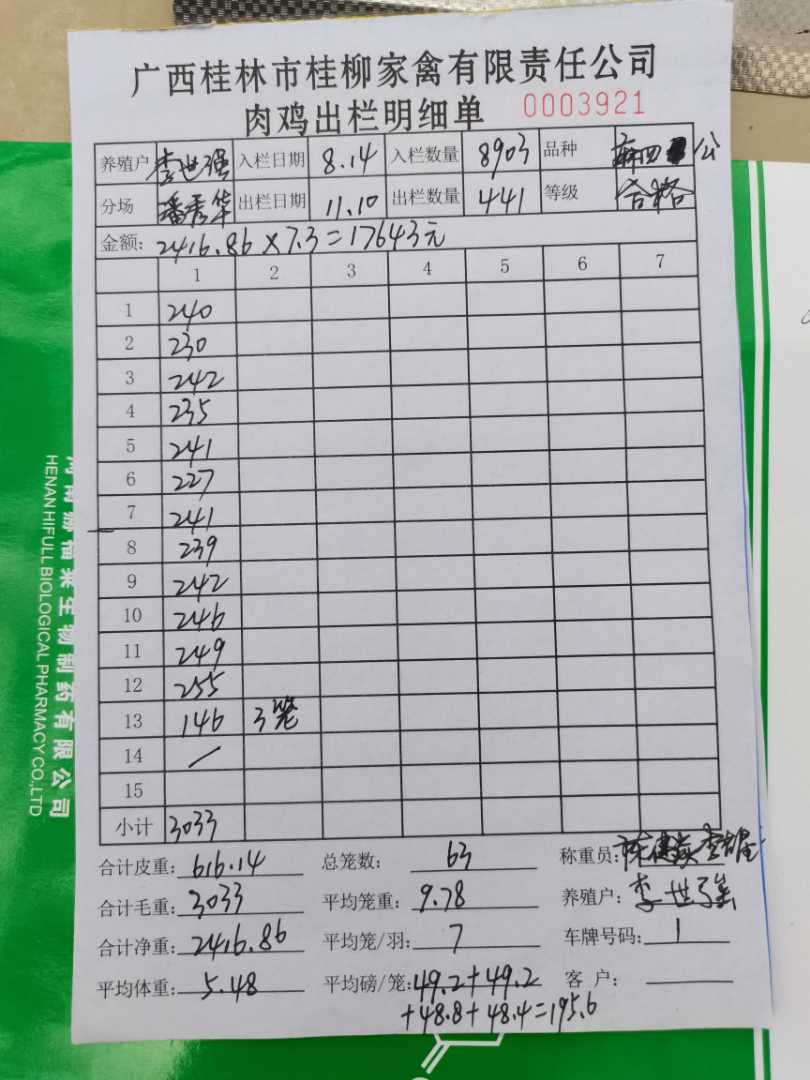 广西桂林市桂柳家禽有限责任公司
肉鸡出栏明细单 0003921
养殖户 李世强 入栏日期 8.14 入栏数量 8903 品种 麻四 公
分场 潘秀华 出栏日期 11.10 出栏数量 441 等级 合格
金额: 2416.86×7.3=17643元
1 2 3 4 5 6 7
1 240
2 230
3 242
4 235
5 241
6 227
7 241
8 239
9 242
10 246
11 249
12 255
13 146 3笼
14 /
15
小计 3033
合计皮重: 616.14 总笼数: 63 称重员:
合计毛重: 3033 平均笼重: 9.78 养殖户: 李世强
合计净重: 2416.86 平均笼/羽: 7 车牌号码: 1
平均体重: 5.48 平均磅/笼: 49.2+49.2 客户:
+48.8+48.4=195.6
生物制药有限公司
HENAN HIFULL BIOLOGICAL PHARMACY CO.,LTD